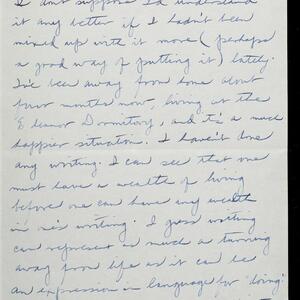 I don't suppose I'd understand
it any better if I hadn't been
mixed up with it more (perhaps
a good way of putting it) lately.
I've been away from home about
four months now, living at the
Eleanor Dormitory, and it's a much
happier situation. I haven't done
any writing. I can see that one
must have a wealth of living
before one can have any wealth
in one's writing. I guess writing
can represent as much a turning
away from life as it can be
an expression in language for "doing".